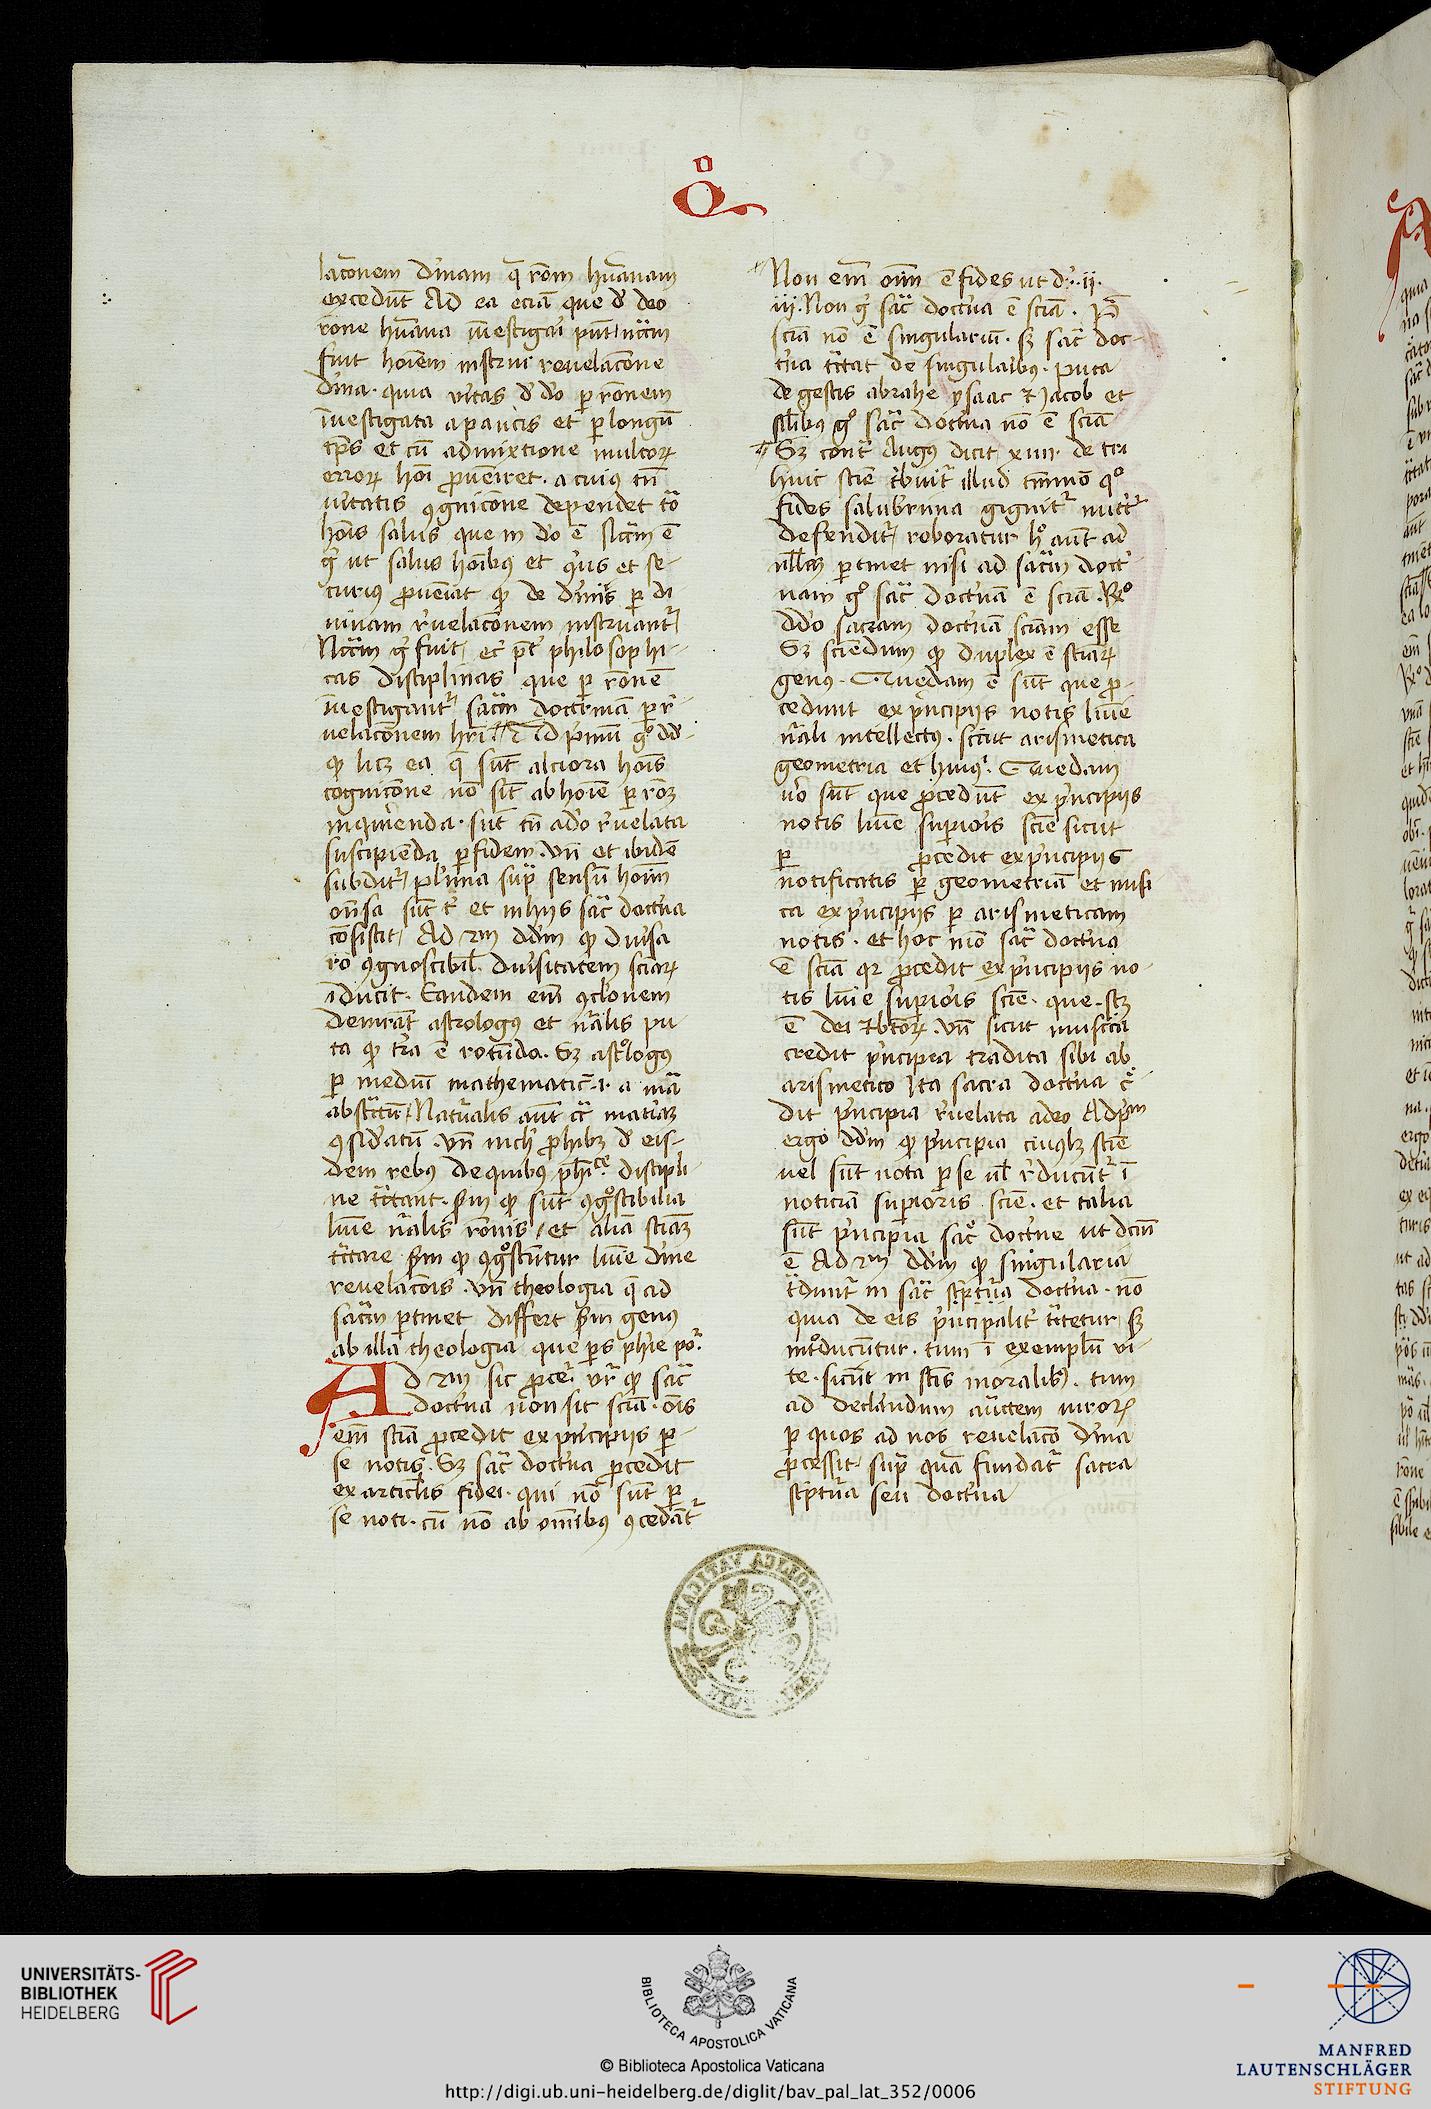 qͦ
lacōnem diuinam q̄ rōm humanam
excedunt Ad ea eciā que de deo
rōne humana inuestigari pnt nccm
fuit hoīem instrui reuelacōne
diuina · quia ueritas de deo per rōnem
inuestigata a paucis et per longū
tp̄s et cū admixtione multorꝝ
errorꝝ hoī proueniret · a cuius tn̄
ueritatis ꝯgnicōne dependet tota
hoīs salus que in deo ē
gͦ ut salus hoībus et et se-
curius proueniat qd de diuinis per di
uinam reuelacōnem instruantur
Nccm gͦ fuit preter philosophi-
cas disciplinas que per rōnē
inuestigantur sacrā doctrinā per re
uelacōnem hrī Ad primū gͦ dd
qd licet ea q̄ sūt alciora hoīs
cognicōne nō sint ab hoīe per rōnē
inquirenda · sūt tn̄ a deo reuelata
suscipienda per fidem · Vn̄ et ibidē
subditur plurima supra sensū hoīm
onsa sūt t et in hiis sacra doctrina
cōsistit Ad 2m ddm qd diuersa
rō ꝯgnoscibilis diuersitatem sciarꝝ
iducit · Eandem em̄ ꝯclōnem
demrat astrologus et naturalis pu
ta qd terra ē rotunda · Sꝫ astrologus
per mediū mathematicū · i · a mā
abstractū Naturalis aūt circa materiā
ꝯsideratū · Vn̄ nich prohibet de eis-
dem rebus de quibus phice discipli-
ne tractant · scdm qd sūt ꝯgͦscibilia
lumine naturalis rōnis et aliā sciam
tractare scdm qd ꝯgͦscuntur lumine diuine
reuelacōis · Vn̄ theologia q̄ ad
sacrā pertinet differt scdm genus
ab illa theologia que pars phie
Ad 2m sic proceditur videtur qd sacra
doctrina non sit sciā · oīs
em̄ sciā procedit ex principiis per
se notis · Sꝫ sacra doctrina procedit
ex articulis fidei · qui nō sūt per
se noti · cū nō ab omībus ꝯcedantur
Non em̄ oīm ē fides ut dr · ii ·
iij · Non gͦ sacra doctrina ē sciā ·
sciā nō ē singulariū · sꝫ sacra doc-
trina tractat de singularibus · puta
de gestis abrahe ysaac et Jacob et
silibus gͦ sacra doctrina nō ē sciā
Sꝫ contra Augus dicit xiiii · de tri
huic scie tribuitur illud tm̄mō qͦ
fides saluberrima gignitur nutritur
defenditur roboratur hͦ aūt ad
nllam pertinet nisi ad sacrā doct-
rinam gͦ sacra doctrinā ē sciā · Rͦ
ddͦ sacram doctrinā sciam esse
Sꝫ sciendum qd duplex ē sciarꝝ
genus · Quedam ē sūt que pro-
cedunt ex principiis notis lumine
naturali intellectus · sicut arismetica
geometria et huiusͥ · Quedam
uero sūt que procedūt ex principiis
notis lumine superioris scie sicut
per procedit ex principiis
notificatis per geometriā et musi
ca ex principiis per arismeticam
notis · et hoc modo sacra doctrina
ē sciā qr procedit ex principiis no-
tis lumie superioris scie · que scꝫ
ē dei et btōrꝝ · Vn̄ sicut musica
credit principia tradita sibi ab
arismetico Ita sacra doctrina cre
dit principia reuelata a deo Ad pm
ergo ddm qd principia cuiuslꝫ scie
uel sūt nota per se ul reducuntur ī
noticiā superioris scie · et talia
sūt principia sacre doctrine ut dcm
ē Ad 2m ddm qd singularia
tradūtur in sacra scriptura doctrina · nō
quia de eis principaliter tractetur sꝫ
introducuntur · tum ī exemplū vi-
te · sicut in sciis moralibus · tum
ad declarandum auctem uirorꝝ
per quos ad nos reuelacō diuina
processit super quā fundatur sacra
scriptura seu doctrina
UNIVERSITÄTS-
BIBLIOTHEK
HEIDELBERG
BIBLIOTECA APOSTOLICA VATICANA
© Biblioteca Apostolica Vaticana
http://digi.ub.uni-heidelberg.de/diglit/bav_pal_lat_352/0006
MANFRED
LAUTENSCHLÄGER
STIFTUNG